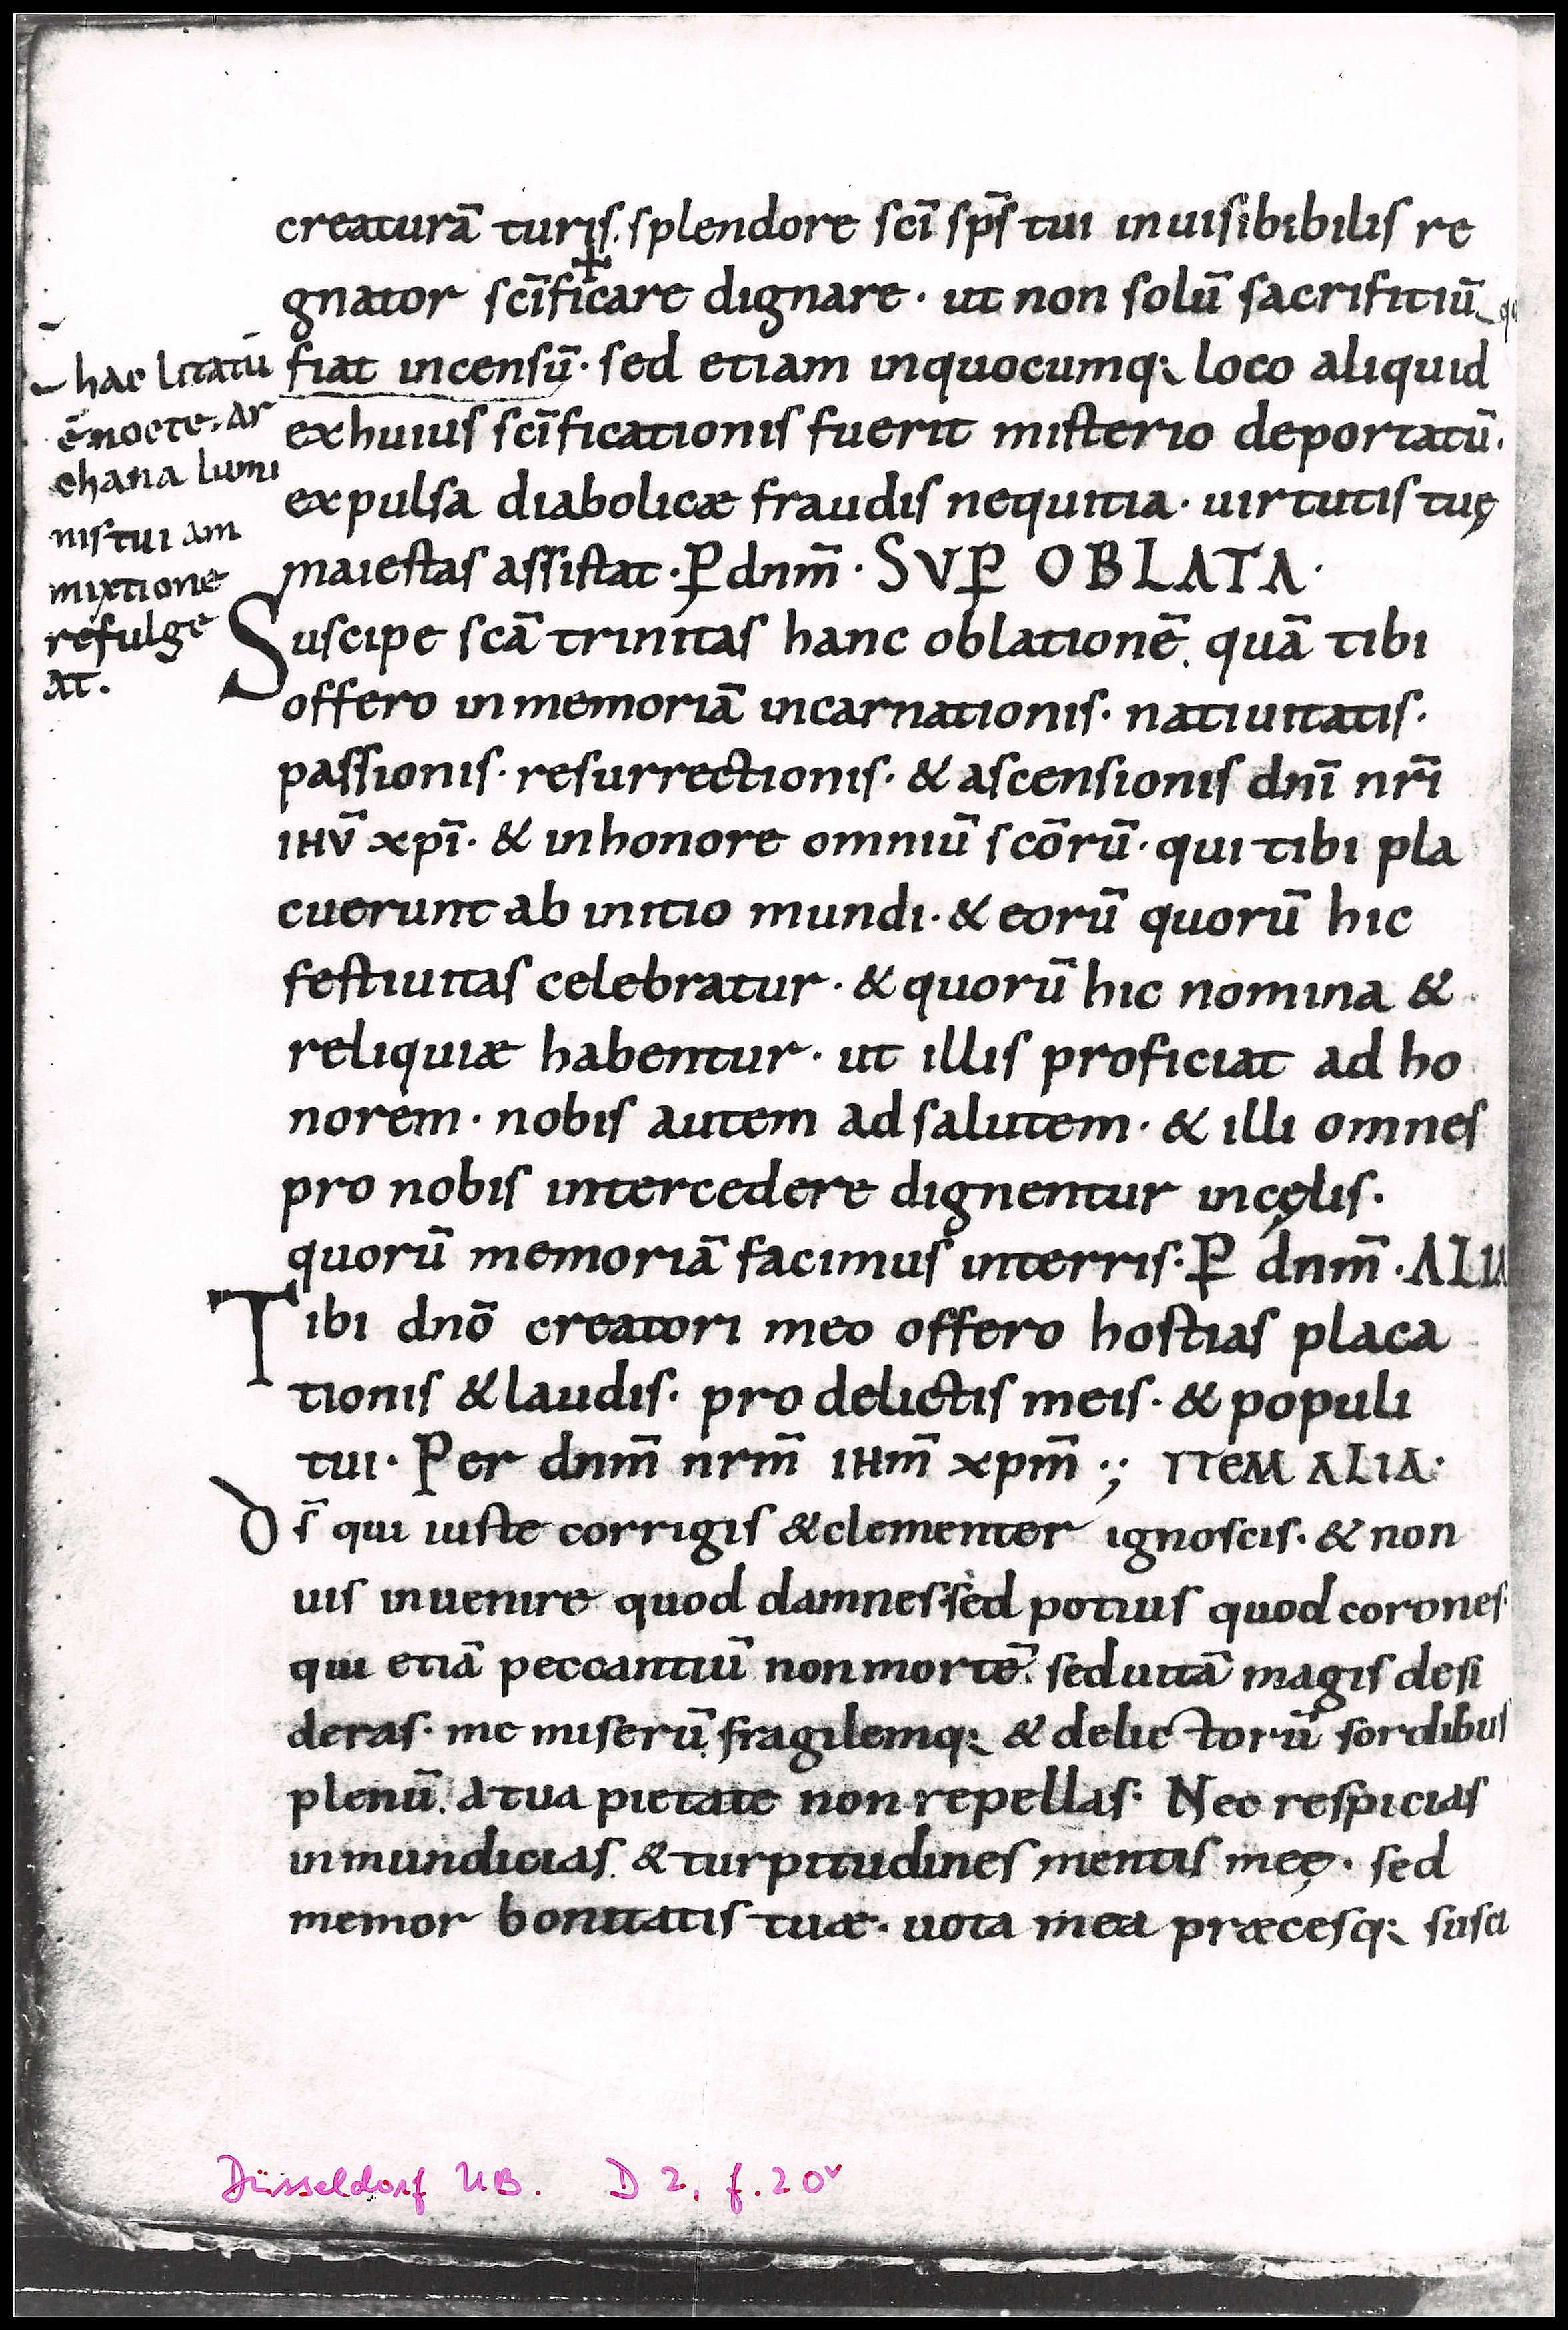 creaturā turis. splendore sc̄i sp̄s tui inuisibibilis re
gnator sc̄ificare dignare · ut non solū sacrifitiū
fiat incensū · sed etiam inquocumq; loco aliquid
exhuius sc̄ificationis fuerit misterio deportatū.
expulsa diabolicæ fraudis nequitia · uirtutis tuę
maiestas assistat · P̱ dnm̄ · SVP̱ OBLATA ·
hac litatū
ē nocte. ar
chana lumi
nis tui am
mixtione
refulge
at.
Suscipe scā trinitas hanc oblationē. quā tibi
offero inmemoriā incarnationis · natiuitatis ·
passionis · resurrectionis · & ascensionis dnī nr̄i
ihū xpī · & inhonore omniū scōrū · qui tibi pla
cuerunt ab initio mundi · & eorū quorū hic
festiuitas celebratur · & quorū hic nomina &
reliquiæ habentur · ut illis proficiat ad ho
norem · nobis autem ad salutem · & illi omnes
pro nobis intercedere dignentur incęlis ·
quorū memoriā facimus interris · P̱ dnm̄ · ALIA
Tibi dnō creatori meo offero hostias placa
tionis & laudis · pro delictis meis · & populi
tui · Per dnm̄ nrm̄ ihm̄ xpm̄ ·; ITEM ALIA ·
Ds̄ qui iuste corrigis & clementer ignoscis · & non
uis inuenire quod damnes sed potius quod corones ·
qui etiā peccantiū nonmortē. sed uitā magis desi
deras · me miserū. fragilemq; & delictorū sordibus
plenū. a tua pietate non repellas · Nec respicias
inmundicias. & turpitudines mentis meę · sed
memor bonitatis tuæ · uota mea præcesq; susci
Düsseldorf UB. D 2, f. 20v